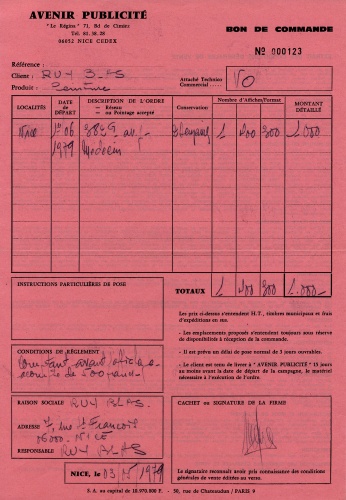 AVENIR PUBLICITÉ
"Le Régina" 71, Bd de Cimiez
Tél. 81.38.28
06052 NICE CEDEX
BON DE COMMANDE
Nº 000123
Référence :
Client : RUY BLAS
Produit :
Attaché Technico
Commercial VO
LOCALITÉS
DATE
de
DÉPART
DESCRIPTION DE L'ORDRE
- Réseau
- ou Pointage accepté
Conservation
Nombre d'Affiches/Format
MONTANT
DÉTAILLÉ
Nice 1º 06
1979 Médecin
INSTRUCTIONS PARTICULIÈRES DE POSE
TOTAUX
Les prix ci-dessus s'entendent H.T., timbres municipaux et frais
d'expéditions en sus.
- Les emplacements proposés s'entendent toujours sous réserve
de disponibilités à réception de la commande.
- Il est prévu un délai de pose normal de 3 jours ouvrables.
- Le client est tenu de livrer à "AVENIR PUBLICITÉ" 15 jours
au moins avant la date de départ de la campagne, le matériel
nécessaire à l'exécution de l'ordre.
CONDITIONS DE RÈGLEMENT
Comptant avant affichage
RAISON SOCIALE RUY BLAS.
ADRESSE 7, rue St François
06000. NICE
RESPONSABLE RUY BLAS
CACHET ou SIGNATURE DE LA FIRME
NICE, le 03 1979
Le signataire reconnaît avoir pris connaissance des conditions
générales de vente éditées au verso.
S. A. au capital de 10.970.000 F. - 50, rue de Chateaudun / PARIS 9